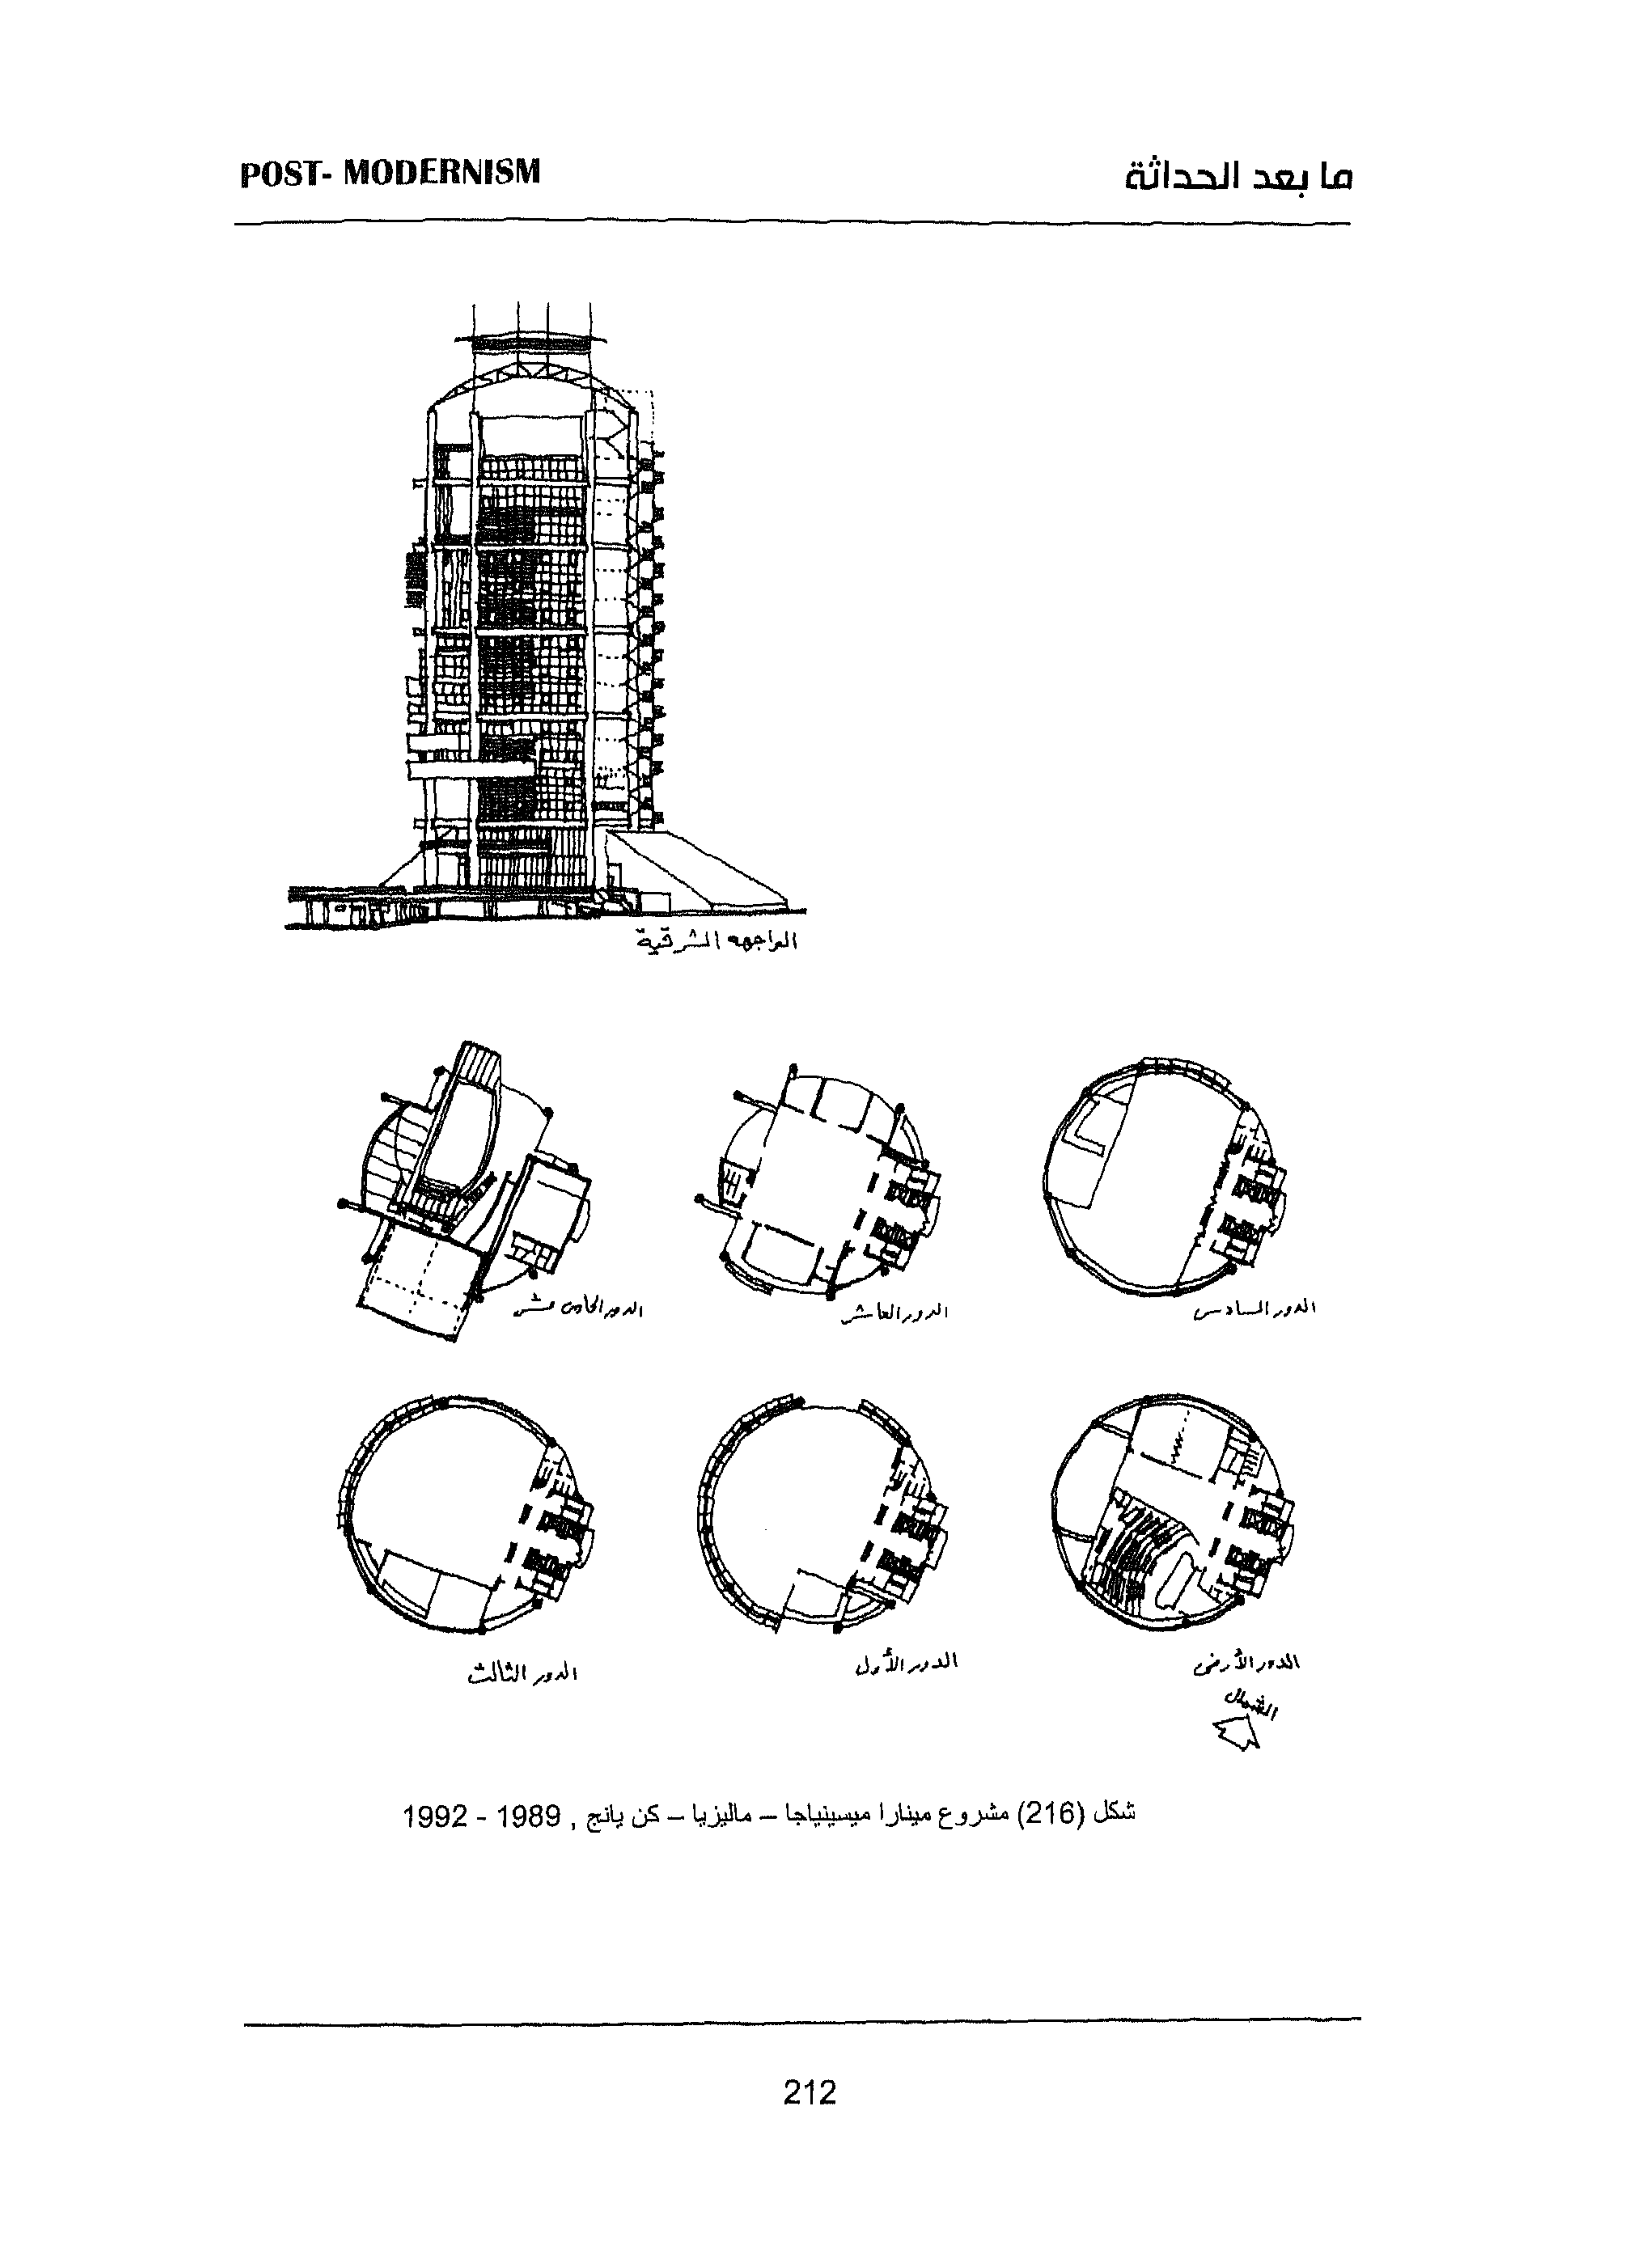 POST- MODERNISM
ما بعد الحداثة
الواجهه الشرقية
الدور السادس
الدور العاشر
الدور الحادى عشر
الدور الأرضى
الدور الأول
الدور الثالث
الشمال
شكل (216) مشروع مينارا ميسينياجا – ماليزيا – كن يانج , 1989 - 1992
212